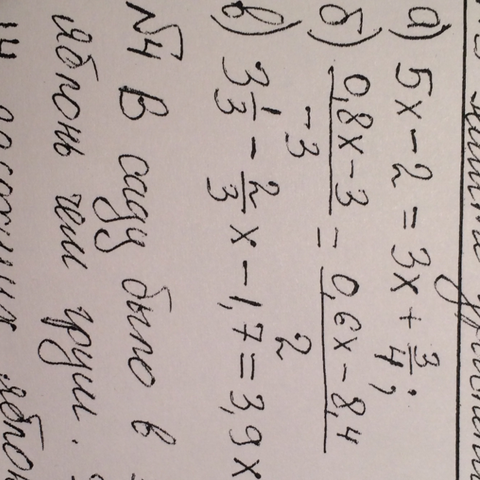 а) 5x - 2 = 3x + 3/4;
б) (0,8x - 3)/(-3) = (0,6x - 8,4)/2
в) 3 1/3 - 2/3 x - 1,7 = 3,9x
№4 В саду было в
яблонь чем груш.